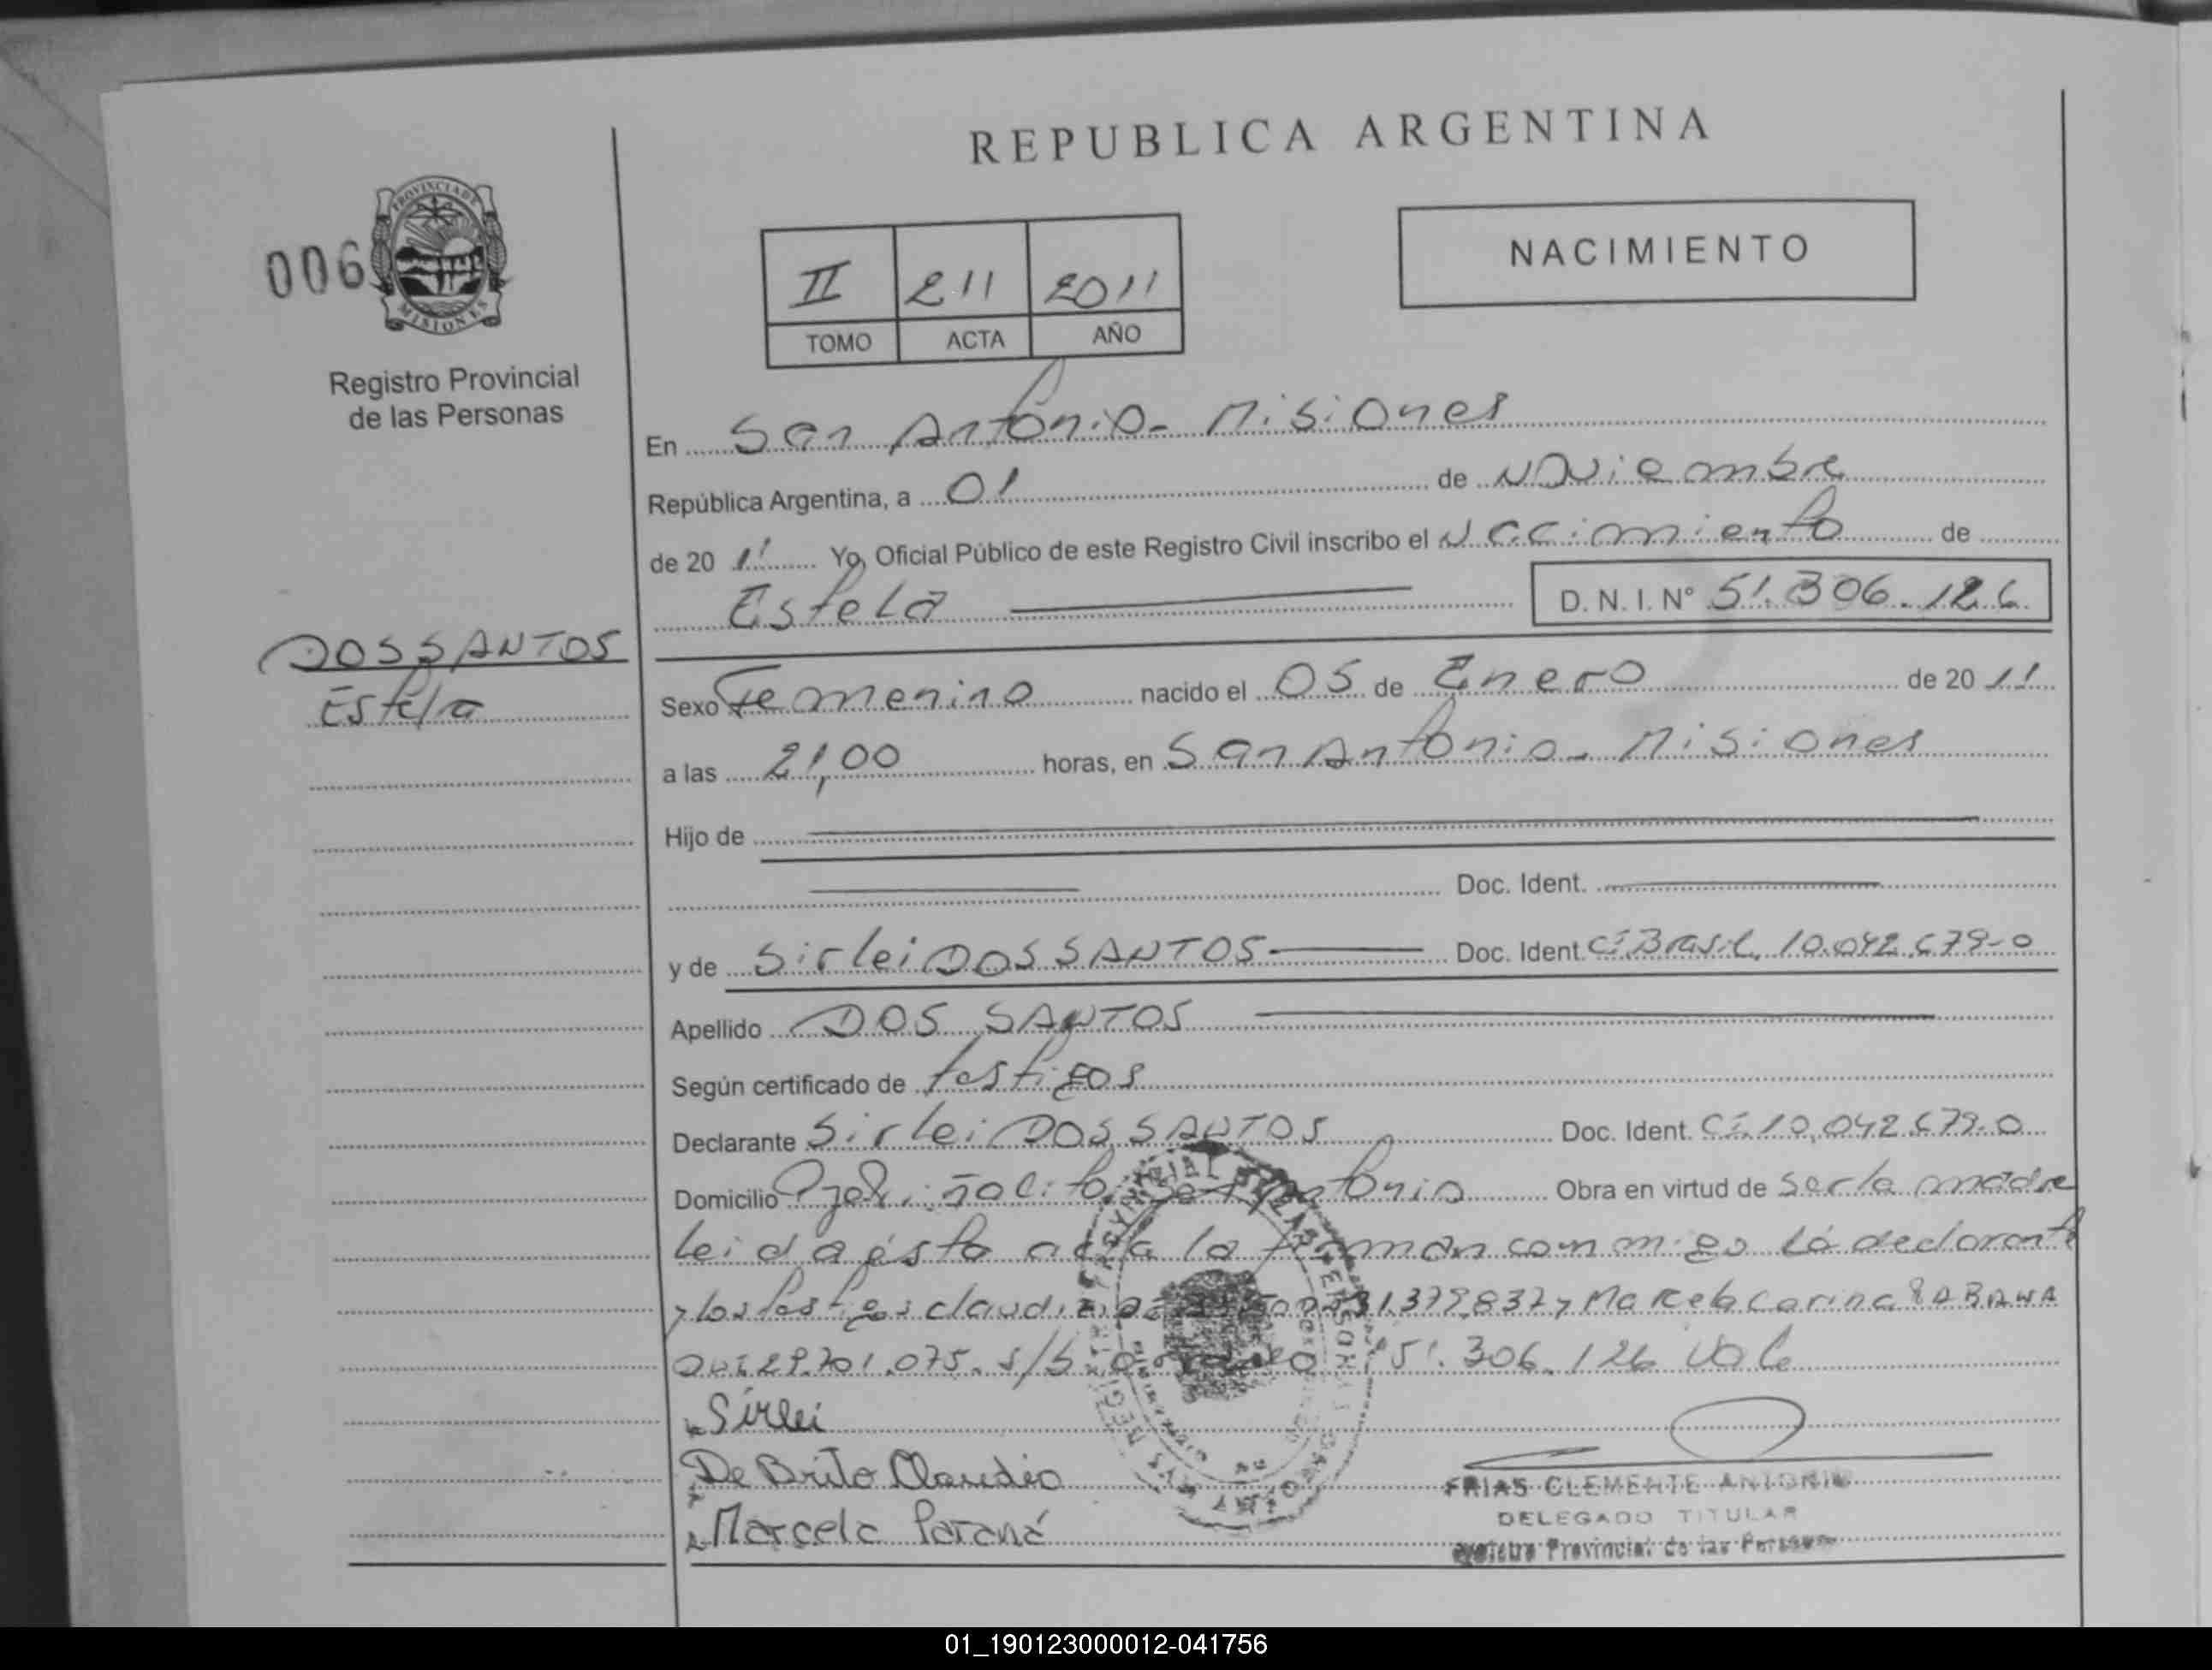 REPUBLICA ARGENTINA
006
PROVINCIA DE
MISIONES
Registro Provincial
de las Personas
II 211 2011
TOMO ACTA AÑO
NACIMIENTO
En San Antonio - Misiones
República Argentina, a 01 de Noviembre
de 20 11 Yo, Oficial Público de este Registro Civil inscribo el Nacimiento de
Estela D. N. I. Nº 51.306.126
DOS SANTOS
Estela
Sexo Femenino nacido el 05 de Enero de 20 11
a las 21,00 horas, en San Antonio - Misiones
Hijo de
Doc. Ident.
y de Sirlei DOS SANTOS Doc. Ident. CI Brasil 10.042.679-0
Apellido DOS SANTOS
Según certificado de testigos
Declarante Sirlei DOS SANTOS Doc. Ident. CI. 10.042.679-0
Domicilio Antonio Obra en virtud de ser la madre
Leida ésta acta la firman conmigo la declarante
y los testigos claudio 31.379.837 y Marcela Carina
DNI 29.701.075. s/b 51.306.126 Vale
Sirlei
De Brito Claudio
Marcela Paraná
FRIAS CLEMENTE ANTONIO
DELEGADO TITULAR
Registro Provincial de las Personas
01_190123000012-041756